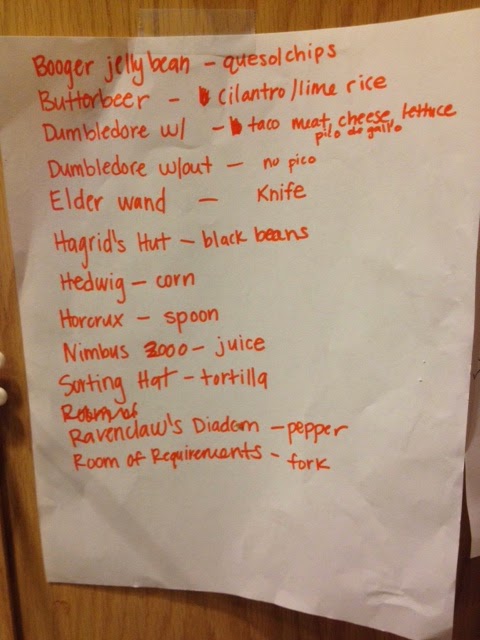 Booger jelly bean - queso/chips
Butterbeer - cilantro/lime rice
Dumbledore w/ - taco meat, cheese, lettuce
pilo de gallo
Dumbledore w/out - no pico
Elder wand - Knife
Hagrid's Hut - black beans
Hedwig - corn
Horcrux - spoon
Nimbus 2000 - juice
Sorting Hat - tortilla
Room of
Ravenclaw's Diadem - pepper
Room of Requirements - fork